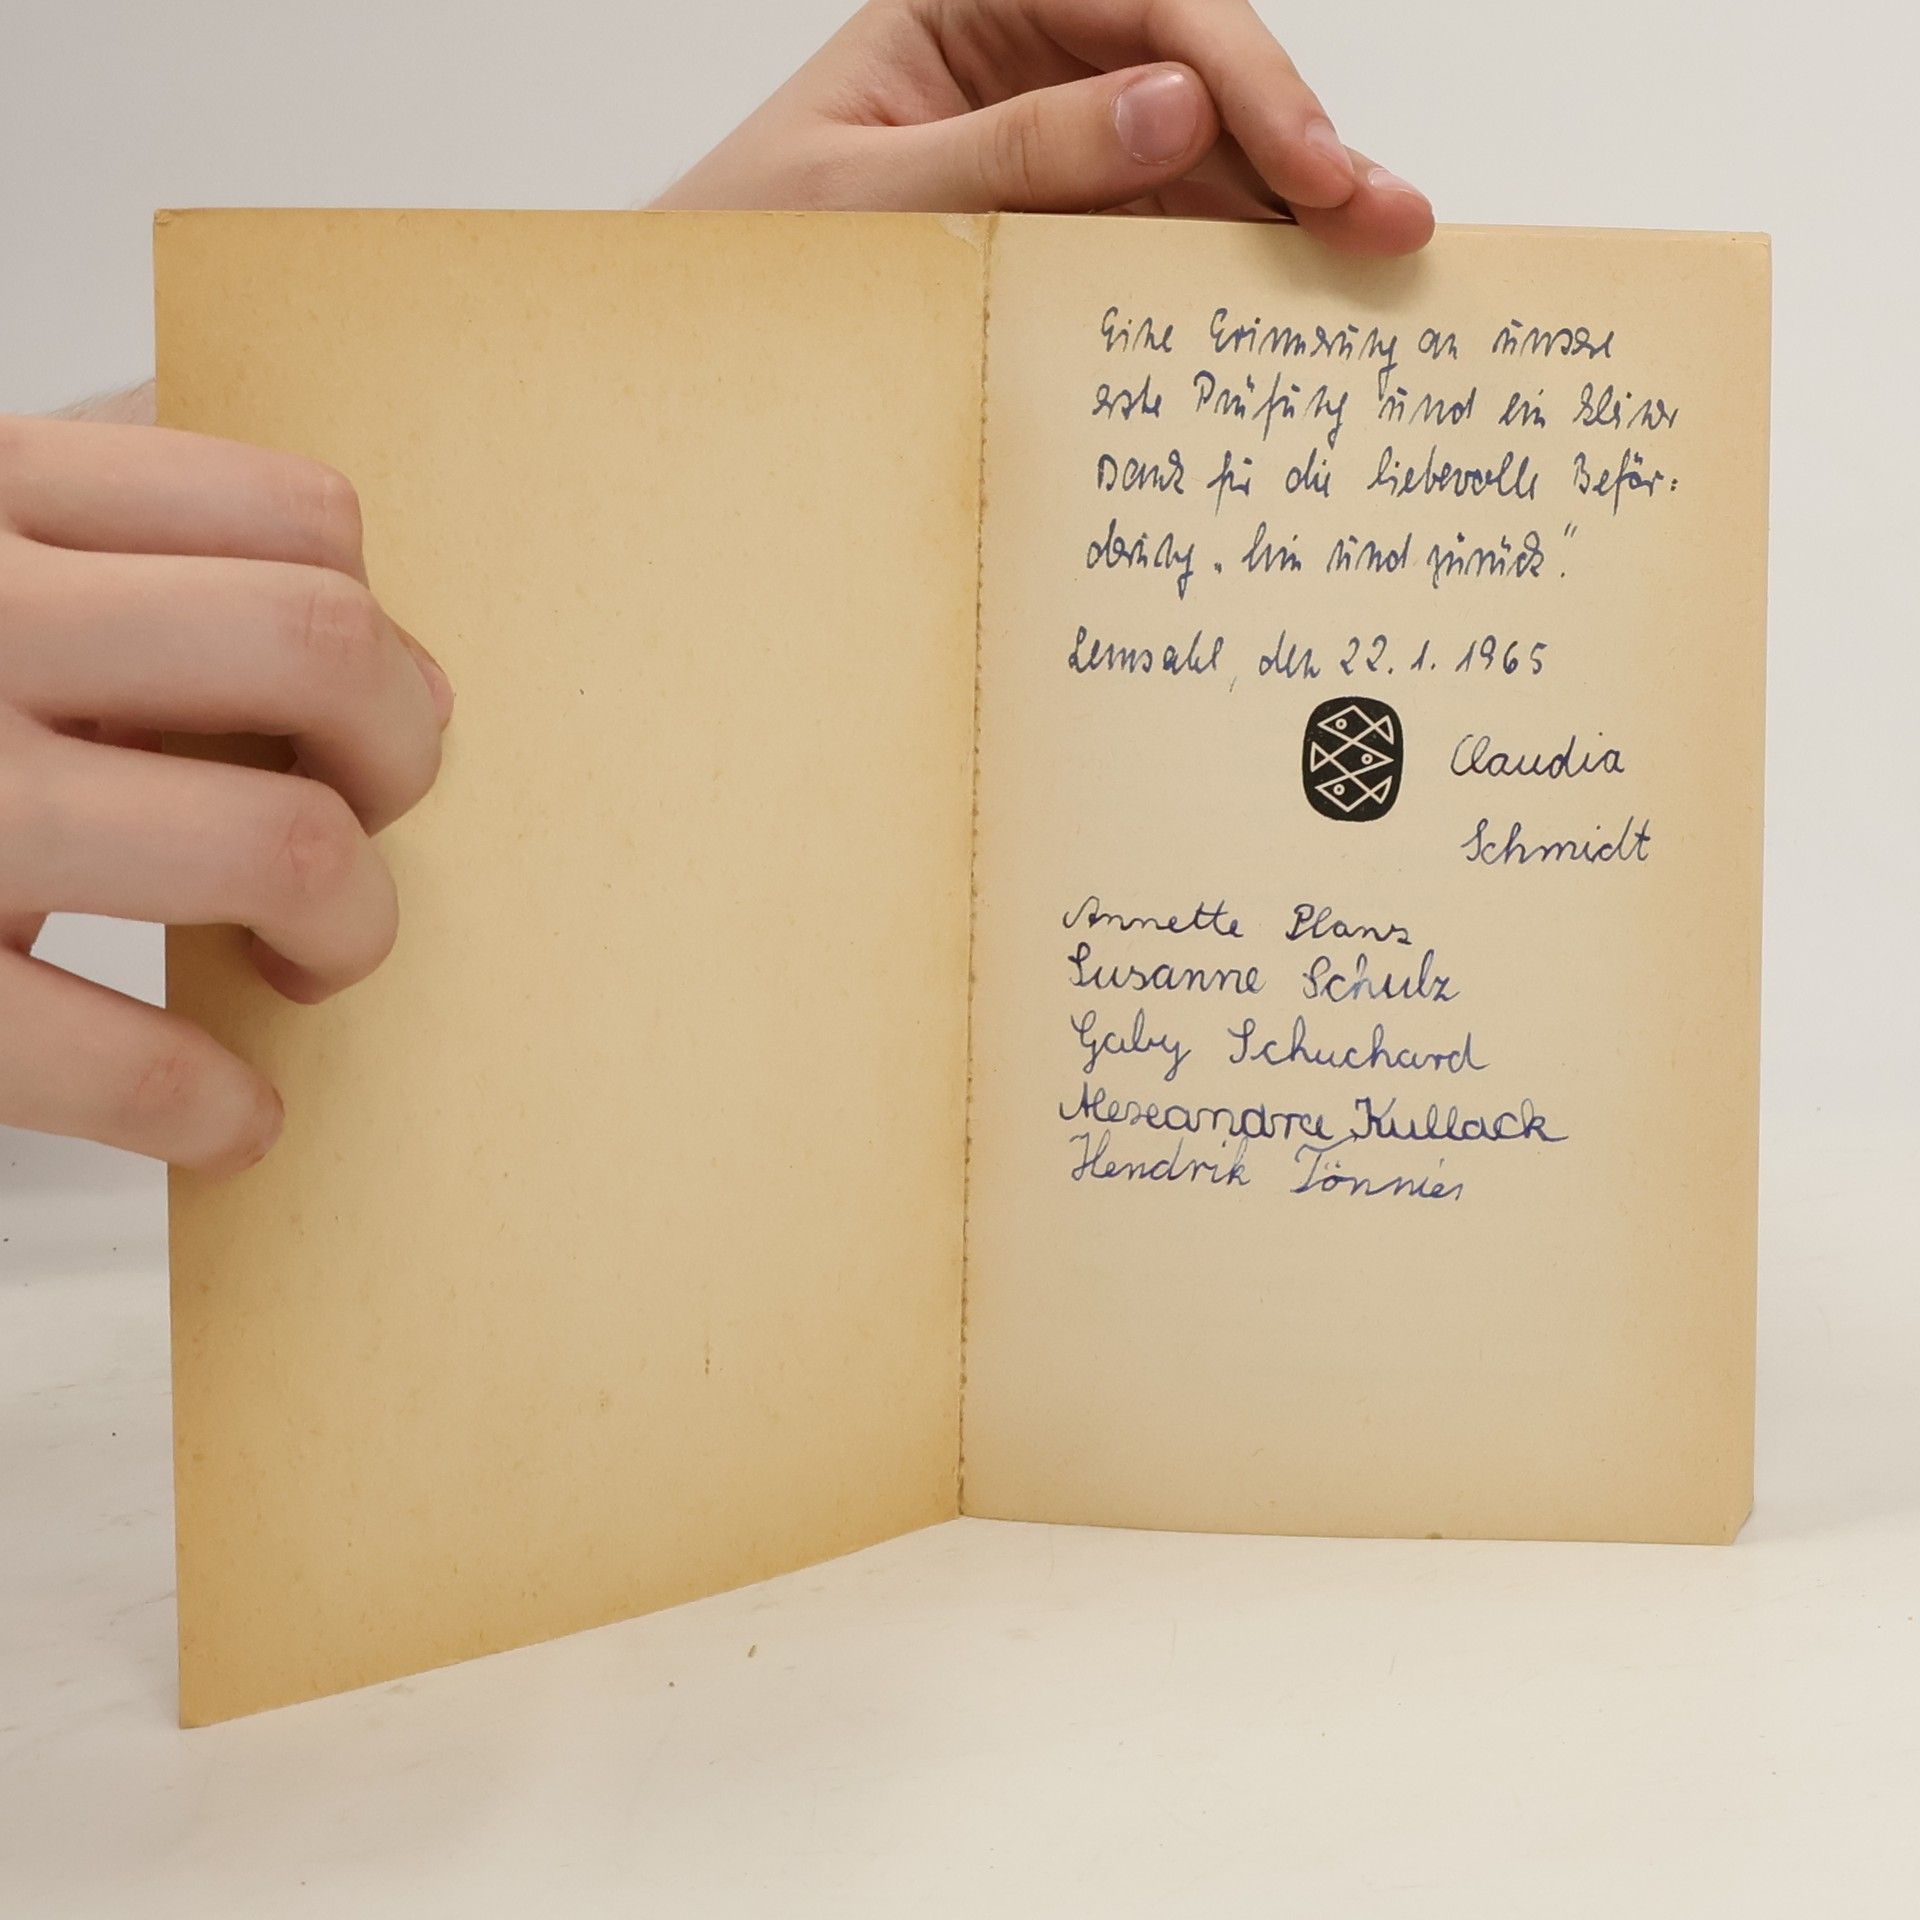 Eine Erinnerung an unsere
erste Prüfung und ein kleiner
Dank für die liebevolle Beför-
derung „hin und zurück."
Lemsahl, den 22. 1. 1965
Claudia
Schmidt
Annette
Susanne Schulz
Gaby Schuchard
Alexandra Kullack
Hendrik Tönnies